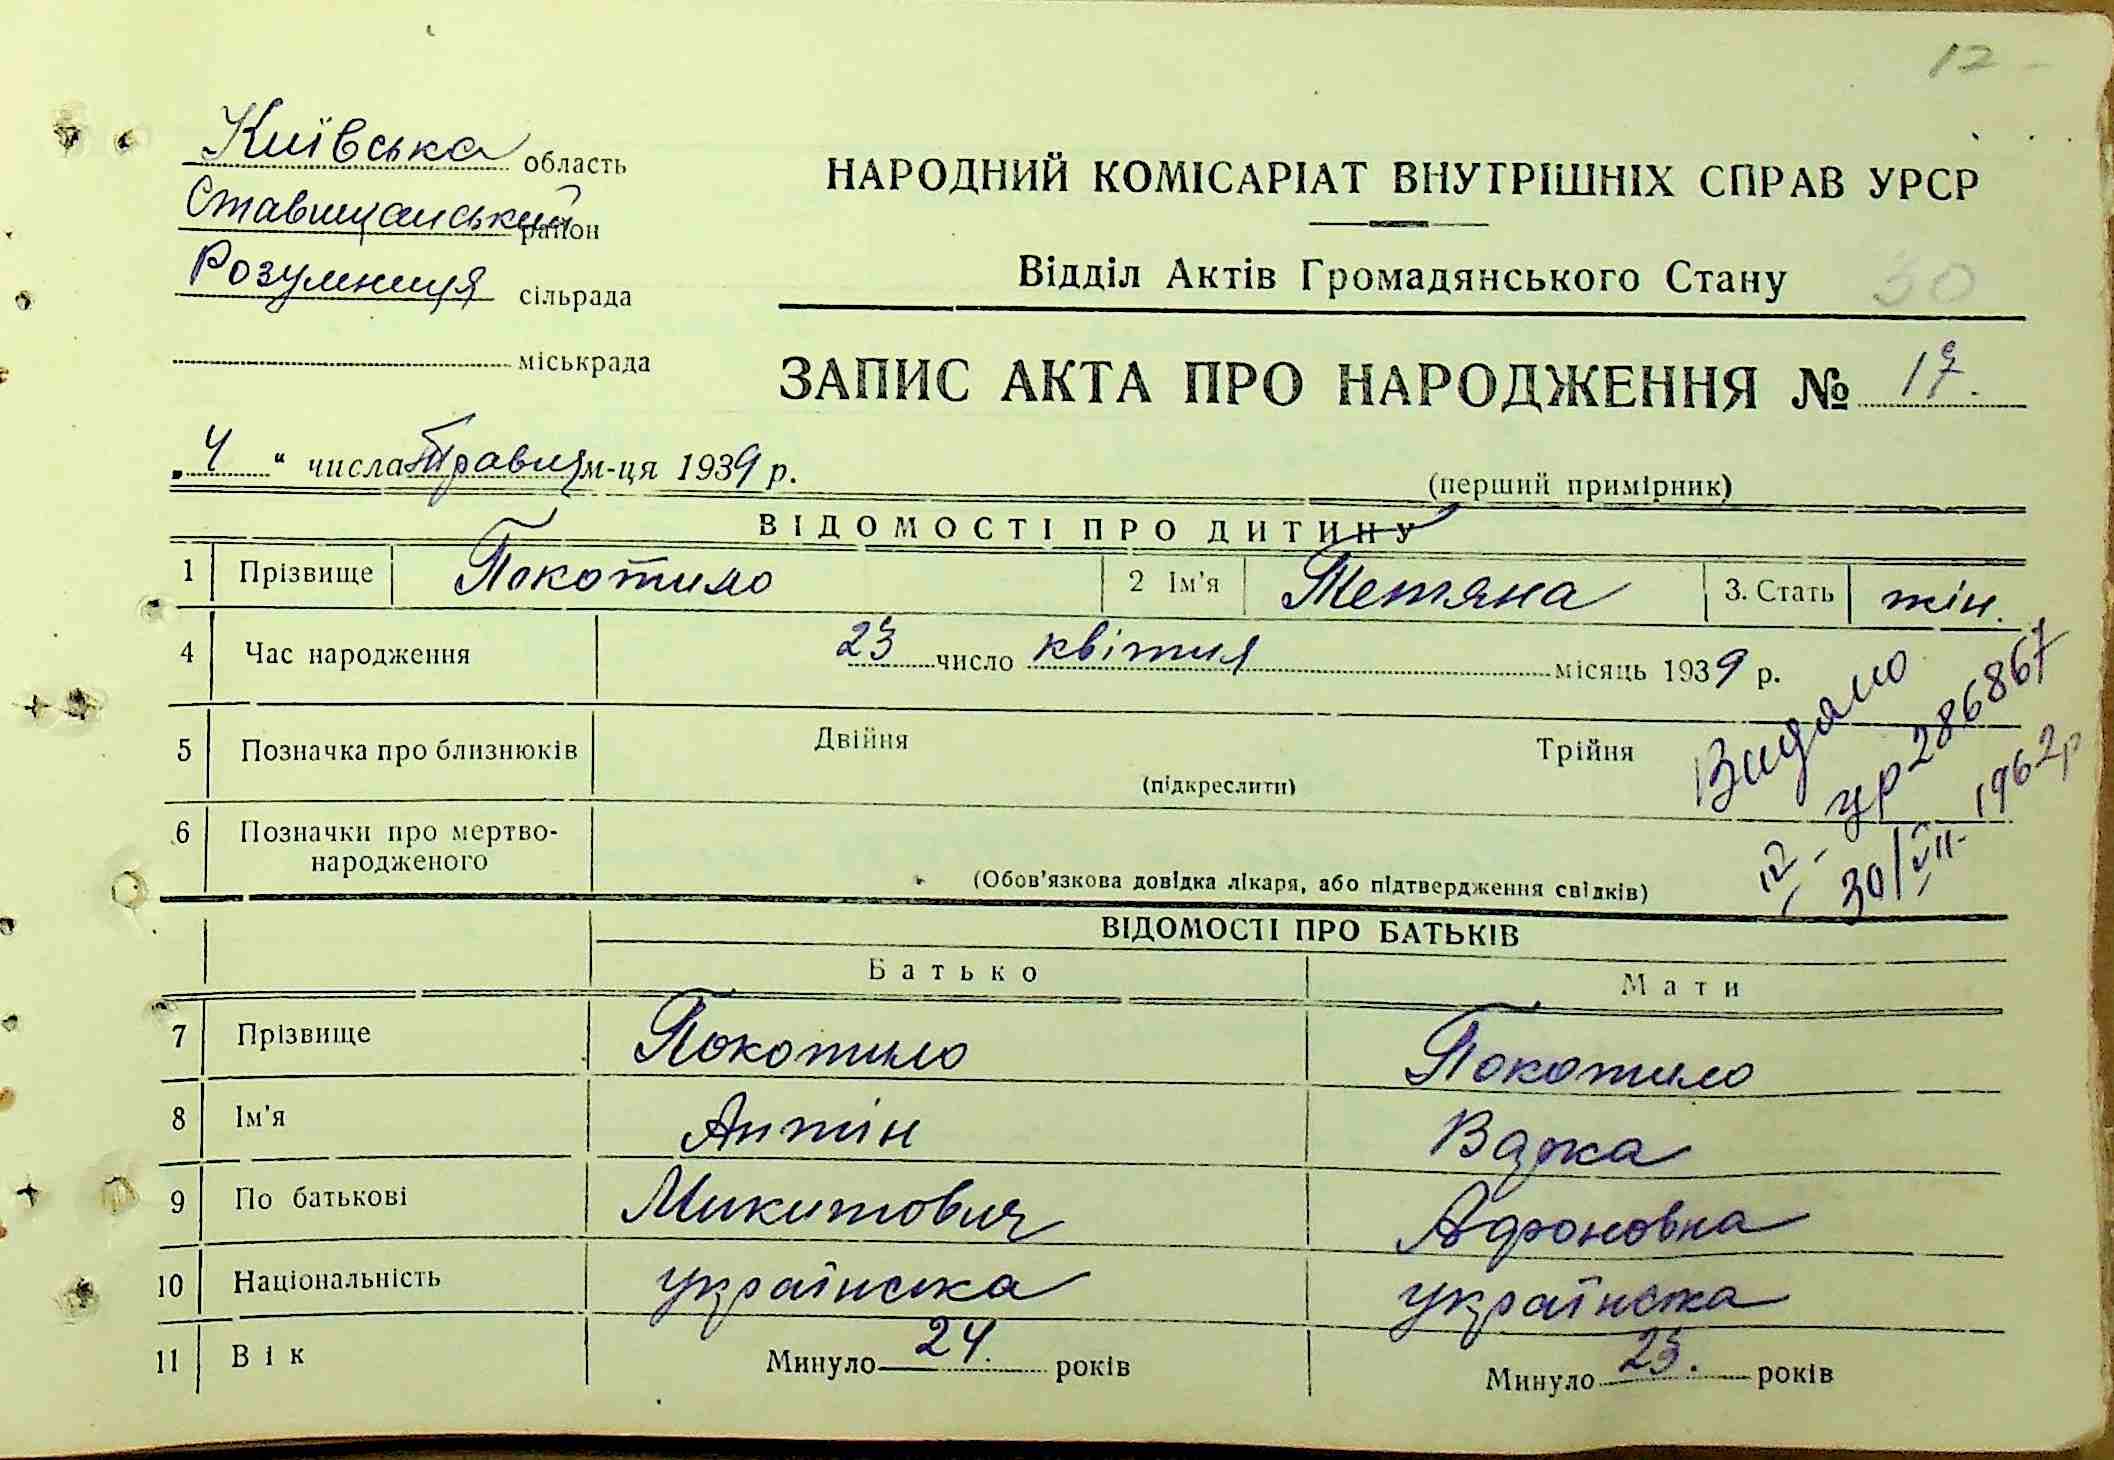 12
Київська область
Ставищанський район
Розумниця сільрада
міськрада
НАРОДНИЙ КОМІСАРІАТ ВНУТРІШНІХ СПРАВ УРСР
Відділ Актів Громадянського Стану 30
ЗАПИС АКТА ПРО НАРОДЖЕННЯ № 17.
„4“ числа Травня м-ця 1939 р.
(перший примірник)
ВІДОМОСТІ ПРО ДИТИНУ
1 Прізвище Покотило 2 Ім'я Тетяна 3. Стать жін.
4 Час народження 23 число квітня місяць 1939 р.
5 Позначка про близнюків Двійня Трійня
(підкреслити)
6 Позначки про мертво-
народженого
(Обов'язкова довідка лікаря, або підтвердження свідків)
Видано
286867
30/VII-1962р
ВІДОМОСТІ ПРО БАТЬКІВ
Батько Мати
7 Прізвище Покотило Покотило
8 Ім'я Антін
9 По батькові Микитович Афоновна
10 Національність українска українска
11 Вік Минуло 24. років Минуло 23. років